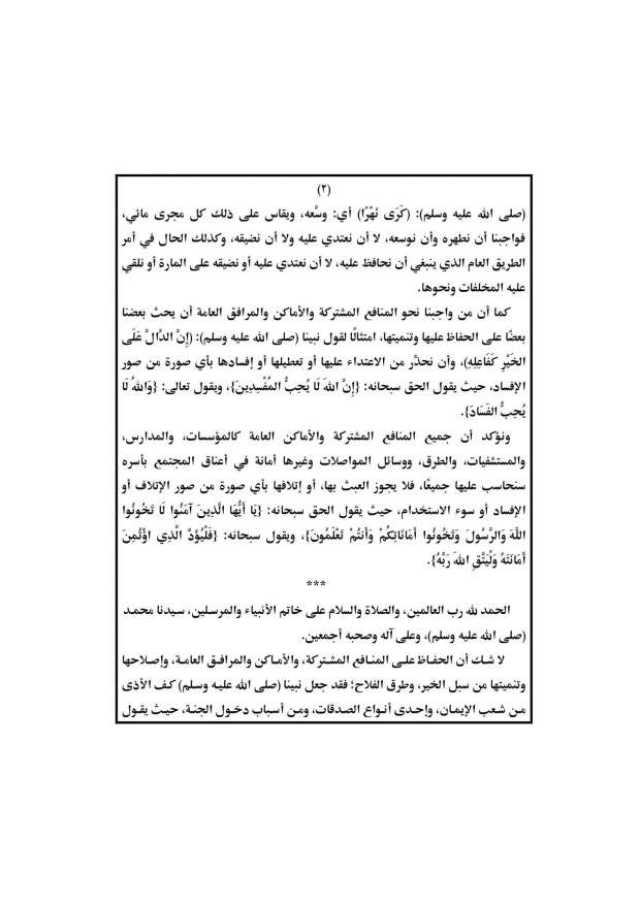 (٢)
(صلى الله عليه وسلم): (كَرَى نَهْرًا) أي: وسَّعه، ويقاس على ذلك كل مجرى مائي،
فواجبنا أن نطهره وأن نوسعه، لا أن نعتدي عليه ولا أن نضيقه، وكذلك الحال في أمر
الطريق العام الذي ينبغي أن نحافظ عليه، لا أن نعتدي عليه أو نضيقه على المارة أو نلقي
عليه المخلفات ونحوها.
كما أن من واجبنا نحو المنافع المشتركة والأماكن والمرافق العامة أن يحث بعضنا
بعضًا على الحفاظ عليها وتنميتها، امتثالًا لقول نبينا (صلى الله عليه وسلم): (إِنَّ الدَّالَّ عَلَى
الخَيْرِ كَفَاعِلِهِ)، وأن نحذَّر من الاعتداء عليها أو تعطيلها أو إفسادها بأي صورة من صور
الإفساد، حيث يقول الحق سبحانه: {إِنَّ اللهَ لَا يُحِبُّ المُفْسِدِينَ}، ويقول تعالى: {وَاللهُ لَا
يُحِبُّ الفَسَادَ}.
ونؤكد أن جميع المنافع المشتركة والأماكن العامة كالمؤسسات، والمدارس،
والمستشفيات، والطرق، ووسائل المواصلات وغيرها أمانة في أعناق المجتمع بأسره
سنحاسب عليها جميعًا، فلا يجوز العبث بها، أو إتلافها بأي صورة من صور الإتلاف أو
الإفساد أو سوء الاستخدام، حيث يقول الحق سبحانه: {يَا أَيُّهَا الَّذِينَ آمَنُوا لَا تَخُونُوا
اللَّهَ وَالرَّسُولَ وَتَخُونُوا أَمَانَاتِكُمْ وَأَنتُمْ تَعْلَمُونَ}، ويقول سبحانه: {فَلْيُؤَدِّ الَّذِي اؤْتُمِنَ
أَمَانَتَهُ وَلْيَتَّقِ اللهَ رَبَّهُ}.
***
الحمد لله رب العالمين، والصلاة والسلام على خاتم الأنبياء والمرسلين، سيدنا محمد
(صلى الله عليه وسلم)، وعلى آله وصحبه أجمعين.
لا شك أن الحفاظ على المنافع المشتركة، والأماكن والمرافق العامة، وإصلاحها
وتنميتها من سبل الخير، وطرق الفلاح؛ فقد جعل نبينا (صلى الله عليه وسلم) كف الأذى
من شعب الإيمان، وإحدى أنواع الصدقات، ومن أسباب دخول الجنة، حيث يقول